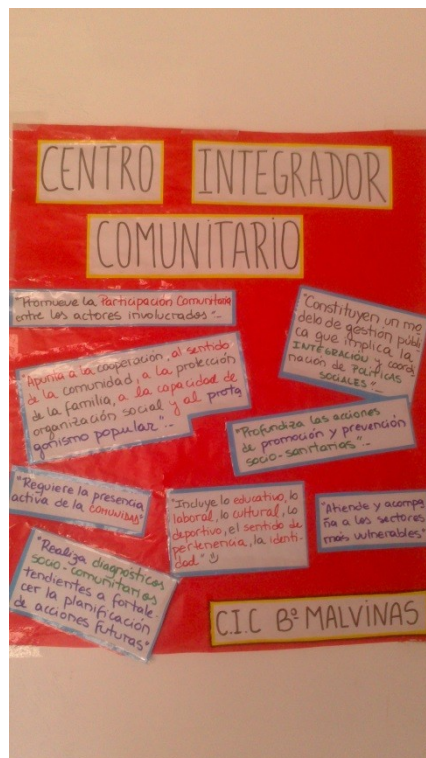 CENTRO INTEGRADOR
COMUNITARIO
"Promueve la Participación Comunitaria
entre los actores involucrados".-
"Constituyen un mo
delo de gestión públi
ca que implica la
INTEGRACIÓN y coordi
nación de POLÍTICAS
SOCIALES".-
"Apunta a la cooperación, al sentido
de la comunidad, a la protección
de la familia, a la capacidad de
organización social y al prota
gonismo popular".-
"Profundiza las acciones
de promoción y prevención
socio-sanitarias".-
"Requiere la presencia
activa de la comunidad"
"Incluye lo educativo, lo
laboral, lo cultural, lo
deportivo, el sentido de
pertenencia, la identi-
dad"
"Atiende y acompa
ña a los sectores
más vulnerables"
"Realiza diagnósticos
socio-comunitarios
tendientes a fortale-
cer la planificación
de acciones futuras"
C.I.C Bº MALVINAS